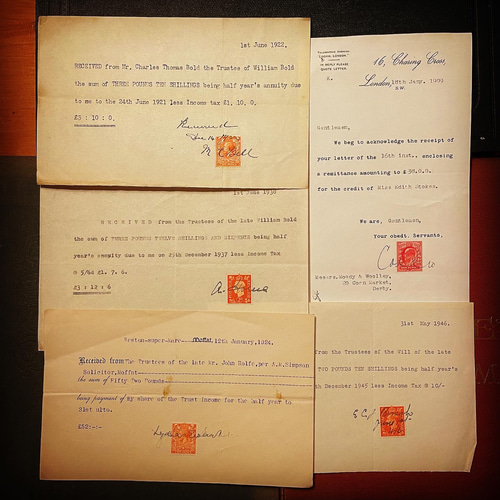 1st June 1922.
RECEIVED from Mr. Charles Thomas Bold the Trustee of William Bold
the sum of THREE POUNDS TEN SHILLINGS being half year's annuity due
to me to the 24th June 1921 less Income tax £1. 10. 0.
£3 : 10 : 0.
1st June 1938
RECEIVED from the Trustees of the late William Bold
the sum of THREE POUNDS TWELVE SHILLINGS AND SIXPENCE being half
year's annuity due to me on 25th December 1937 less Income Tax
@ 5/6d £1. 7. 6.
£3 : 12 : 6
Weston-super-Mare 12th January, 1924.
Received from The Trustees of the late Mr. John Rolfe, per A.H.Simpson
Solicitor, Moffat
the sum of Fifty Two Pounds
being payment of my share of the Trust income for the half year to
31st ulto.
£52:-:-
16, Charing Cross,
London, 18th Jany. 1909
S.W.
Gentlemen,
We beg to acknowledge the receipt of
your letter of the 16th inst., enclosing
a remittance amounting to £38.0.0.
for the credit of Miss Edith Stokes.
We are, Gentlemen,
Your obedt. Servants,
Messrs. Moody & Woolley,
Corn Market,
Derby.
31st May 1946.
from the Trustees of the Will of the late
TWO POUNDS TEN SHILLINGS being half year's
th December 1945 less Income Tax @ 10/-